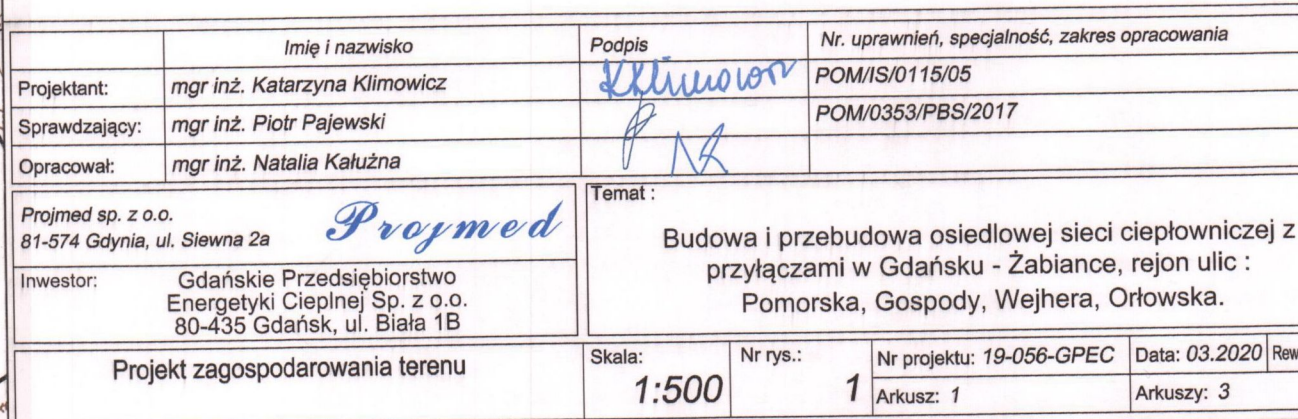 Imię i nazwisko Podpis Nr. uprawnień, specjalność, zakres opracowania
Projektant: mgr inż. Katarzyna Klimowicz KKlimowicz POM/IS/0115/05
Sprawdzający: mgr inż. Piotr Pajewski POM/0353/PBS/2017
Opracował: mgr inż. Natalia Kałużna NK
Projmed sp. z o.o.
81-574 Gdynia, ul. Siewna 2a
Projmed
Inwestor: Gdańskie Przedsiębiorstwo
Energetyki Cieplnej Sp. z o.o.
80-435 Gdańsk, ul. Biała 1B
Temat :
Budowa i przebudowa osiedlowej sieci ciepłowniczej z
przyłączami w Gdańsku - Żabiance, rejon ulic :
Pomorska, Gospody, Wejhera, Orłowska.
Projekt zagospodarowania terenu
Skala:
1:500
Nr rys.:
1
Nr projektu: 19-056-GPEC Data: 03.2020 Rew
Arkusz: 1 Arkuszy: 3